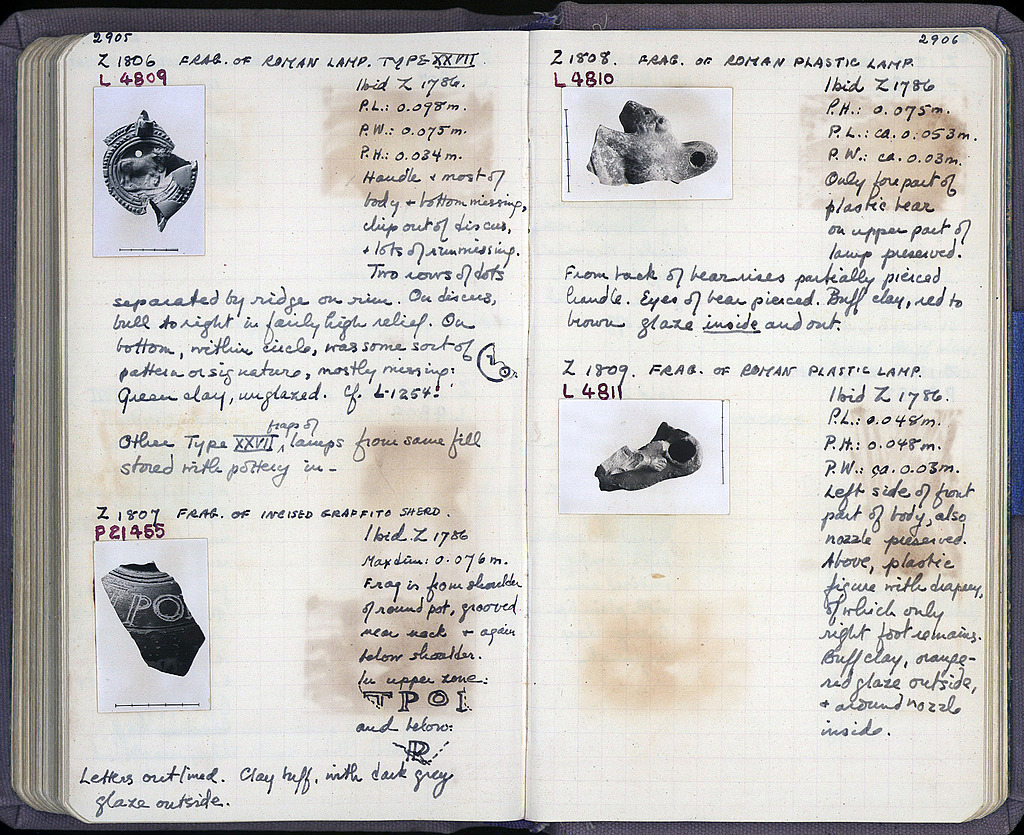 2905
Z 1806 FRAG. OF ROMAN LAMP. TYPE XXVII.
L 4809
Ibid Z 1786.
P.L.: 0.098m.
P.W.: 0.075m.
P.H.: 0.034m.
Handle + most of
body + bottom missing,
chip out of discus,
+ lots of rim missing.
Two rows of dots
separated by ridge on rim. On discus,
bull to right in fairly high relief. On
bottom, within circle, was some sort of
pattern or signature, mostly missing:
Green clay, unglazed. Cf. L 1254.
frags of
Other Type XXVII, lamps from same fill
stored with pottery in –
Z 1807 FRAG. OF INCISED GRAFFITO SHERD.
P 21455
Ibid Z 1786
Max dim: 0.076m.
Frag is from shoulder
of round pot, grooved
near neck + again
below shoulder.
In upper zone:
ΤΡΟΙ
and below:
R
Letters outlined. Clay buff, with dark grey
glaze outside.
2906
Z 1808. FRAG. OF ROMAN PLASTIC LAMP.
L 4810
Ibid Z 1786
P.H.: 0.075m.
P.L.: ca. 0.053m.
P.W.: ca. 0.03m.
Only forepart of
plastic bear
on upper part of
lamp preserved.
From back of bear rises partially pierced
handle. Eyes of bear pierced. Buff clay, red to
brown glaze inside and out.
Z 1809. FRAG. OF ROMAN PLASTIC LAMP.
L 4811
Ibid Z 1786.
P.L.: 0.048m.
P.H.: 0.048m.
P.W.: ca. 0.03m.
Left side of front
part of body, also
nozzle preserved.
Above, plastic
figure with drapery,
of which only
right foot remains.
Buff clay, orange-
red glaze outside,
+ around nozzle
inside.